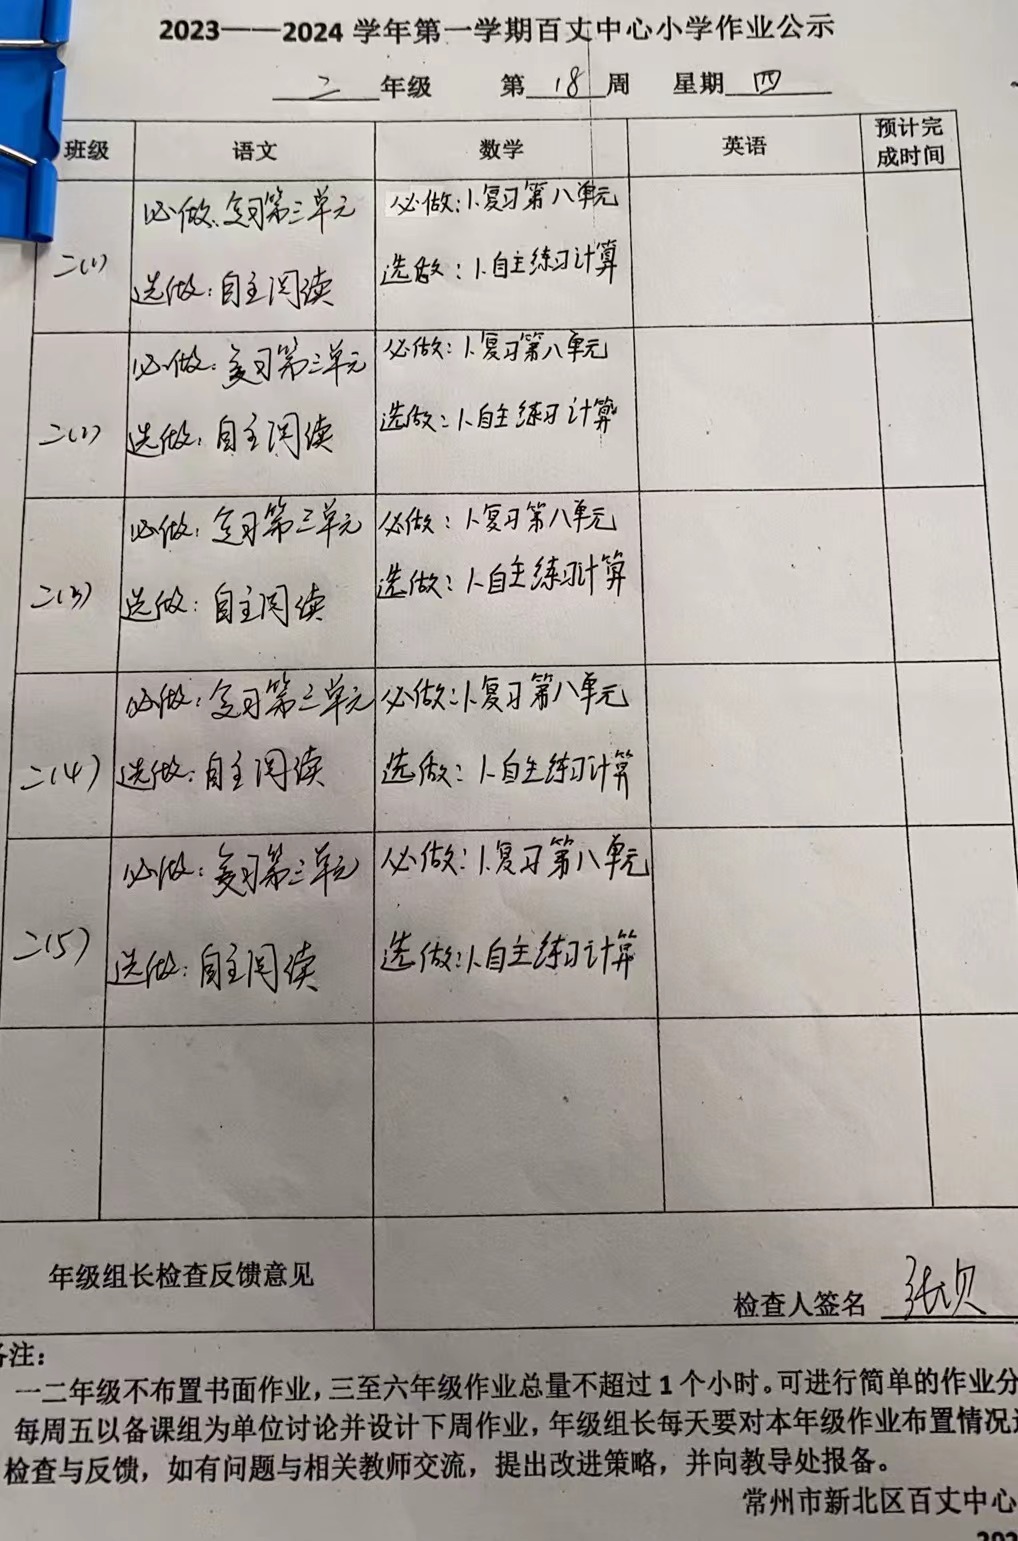 2023——2024 学年第一学期百丈中心小学作业公示
二 年级 第 18 周 星期 四
班级 语文 数学 英语 预计完成时间
二(1) 必做:复习第三单元 必做:1.复习第八单元
选做:自主阅读 选做:1.自主练习计算
二(2) 必做:复习第三单元 必做:1.复习第八单元
选做:自主阅读 选做:1.自主练习计算
二(3) 必做:复习第三单元 必做:1.复习第八单元
选做:自主阅读 选做:1.自主练习计算
二(4) 必做:复习第三单元 必做:1.复习第八单元
选做:自主阅读 选做:1.自主练习计算
二(5) 必做:复习第三单元 必做:1.复习第八单元
选做:自主阅读 选做:1.自主练习计算
年级组长检查反馈意见
检查人签名 张贝
备注:
一二年级不布置书面作业,三至六年级作业总量不超过 1 个小时。可进行简单的作业分
每周五以备课组为单位讨论并设计下周作业,年级组长每天要对本年级作业布置情况
检查与反馈,如有问题与相关教师交流,提出改进策略,并向教导处报备。
常州市新北区百丈中心